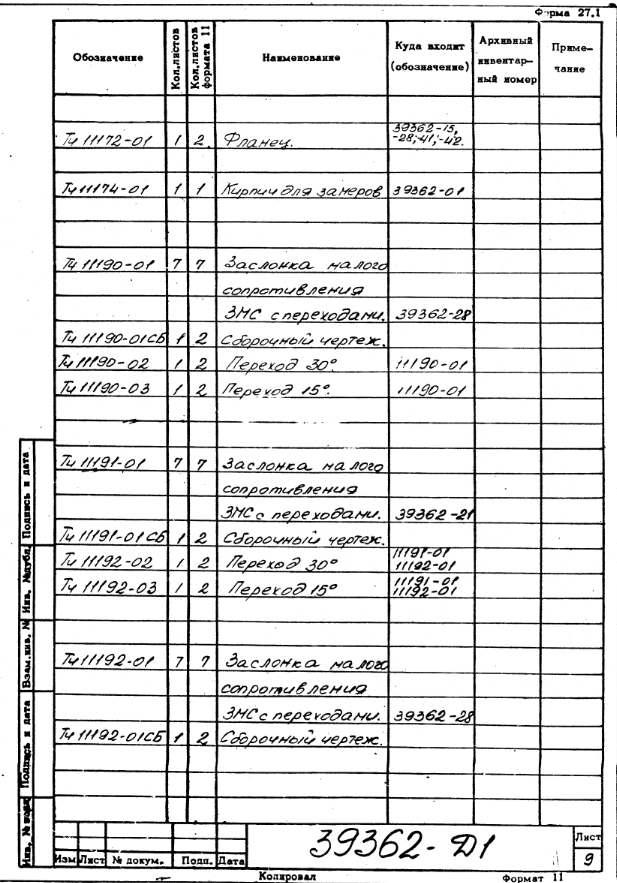 Форма 27.1
Обозначение Кол.листов Кол.листов формата 11 Наименование Куда входит (обозначение) Архивный инвентарный номер Приме-чание
Тч 11172-01 1 2 Фланец. 39362-15, -28,-41,-42.
Тч 11174-01 1 1 Кирпич для замеров 39362-01
Тч 11190-01 7 7 Заслонка малого
сопротивления
ЗМС с переходами. 39362-28
Тч 11190-01СБ 1 2 Сборочный чертеж.
Тч 11190-02 1 2 Переход 30° 11190-01
Тч 11190-03 1 2 Переход 15°. 11190-01
Тч 11191-01 7 7 Заслонка малого
сопротивления
ЗМС с переходами. 39362-21
Тч 11191-01СБ 1 2 Сборочный чертеж.
Тч 11192-02 1 2 Переход 30° 11191-01 11192-01
Тч 11192-03 1 2 Переход 15° 11191-01 11192-01
Тч 11192-01 7 7 Заслонка малого
сопротивления
ЗМС с переходами. 39362-28
Тч 11192-01СБ 1 2 Сборочный чертеж.
Инв. № подл Подпись и дата Взам.инв. № Инв. №дубл. Подпись и дата
39362-Д1
Лист
9
Изм Лист № докум. Подп. Дата
Копировал Формат 11